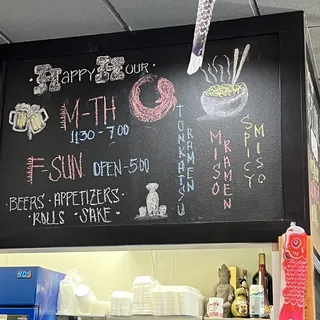 Happy Hour
M-TH
11:30 - 7:00
F-SUN OPEN-5:00
BEERS · APPETIZERS
ROLLS · SAKE ·
TONKATSU RAMEN
MISO RAMEN
SPICY MISO